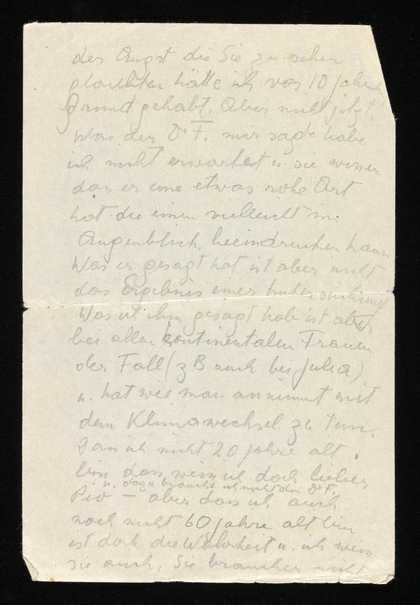 der Angst die Sie zu sehen
glaubten hätte ich vor 10 Jahren
Grund gehabt. Aber nicht jetzt!
Was der Dr F. mir sagte habe
ich nicht erwartet u. sie wissen
dass er eine etwas rohe Art
hat die einen vielleicht im
Augenblick beeindrucken kann
Was er gesagt hat ist aber nicht
das Ergebnis einer Untersuchung
Was ich ihm gesagt habe ist aber
bei allen kontinentalen Frauen
der Fall (z B auch bei Julia)
u. hat wie man annimmt mit
dem Klimawechsel zu tun.
Dass ich nicht 20 Jahre alt
bin das weiss ich doch lieber
u. dazu brauche ich nicht den Dr F.
– aber dass ich auch
noch nicht 60 Jahre alt bin
ist doch die Wahrheit u. ich weiss
sie auch. Sie brauchen nicht